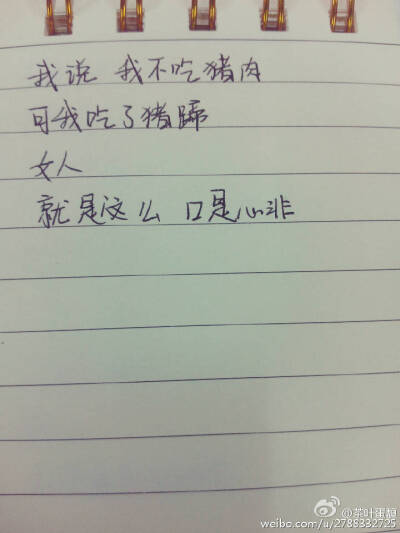 我说 我不吃猪肉
可我吃了猪蹄
女人
就是这么 口是心非
@茶叶蛋超
weibo.com/u/2788332725